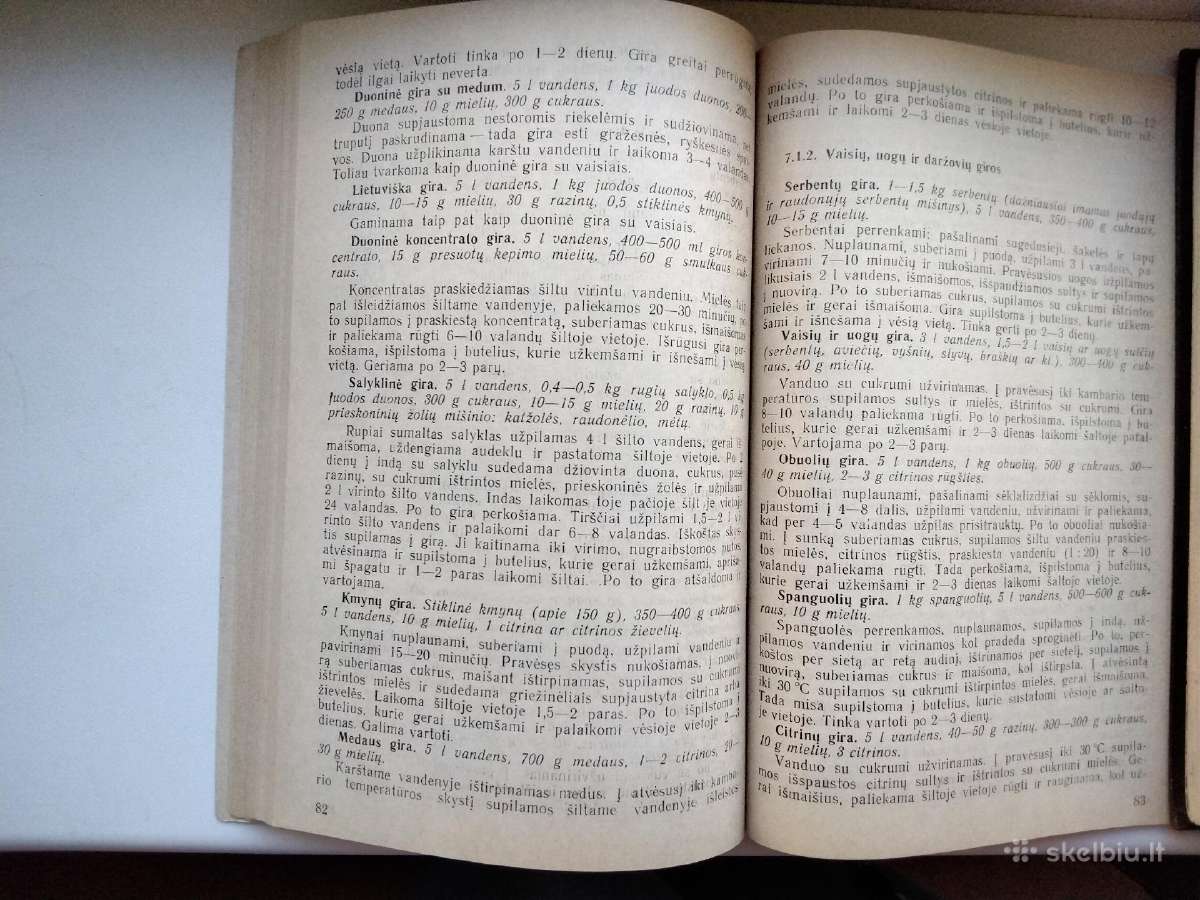 vėsią vietą. Vartoti tinka po 1—2 dienų. Gira greitai
todėl ilgai laikyti neverta.
Duoninė gira su medum. 5 l vandens, 1 kg juodos duonos,
250 g medaus, 10 g mielių, 300 g cukraus.
Duona supjaustoma nestoromis riekelėmis ir sudžiovinama, net
truputį paskrudinama — tada gira esti gražesnės, ryškesnės
vos. Duona užplikinama karštu vandeniu ir laikoma 3—4 valandas.
Toliau tvarkoma kaip duoninė gira su vaisiais.
Lietuviška gira. 5 l vandens, 1 kg juodos duonos, 400—500 g
cukraus, 10—15 g mielių, 30 g razinų, 0,5 stiklinės kmynų.
Gaminama taip pat kaip duoninė gira su vaisiais.
Duoninė koncentrato gira. 5 l vandens, 400—500 ml giros kon-
centrato, 15 g presuotų kepimo mielių, 50—60 g smulkaus cuk-
raus.
Koncentratas praskiedžiamas šiltu virintu vandeniu. Mielės taip
pat išleidžiamos šiltame vandenyje, paliekamos 20—30 minučių, po
to supilamos į praskiestą koncentratą, suberiamas cukrus, išmaišoma
ir paliekama rūgti 6—10 valandų šiltoje vietoje. Išrūgusi gira per-
košiama, išpilstoma į butelius, kurie užkemšami ir išnešami į vėsią
vietą. Geriama po 2—3 parų.
Salyklinė gira. 5 l vandens, 0,4—0,5 kg rugių salyklo, 0,5 kg
juodos duonos, 300 g cukraus, 10—15 g mielių, 20 g razinų, 10 g
prieskoninių žolių mišinio: katžolės, raudonėlio, mėtų.
Rupiai sumaltas salyklas užpilamas 4 l šilto vandens, gerai iš-
maišoma, uždengiama audeklu ir pastatoma šiltoje vietoje. Po 2
dienų į indą su salyklu sudedama džiovinta duona, cukrus, pusė
razinų, su cukrumi ištrintos mielės, prieskoninės žolės ir užpilama
2 l virinto šilto vandens. Indas laikomas toje pačioje šiltoje vietoje
24 valandas. Po to gira perkošiama. Tirščiai užpilami 1,5—2 l vi-
rinto šilto vandens ir palaikomi dar 6—8 valandas. Iškoštas skys-
tis supilamas į girą. Ji kaitinama iki virimo, nugraibstomos putos,
atvėsinama ir supilstoma į butelius, kurie gerai užkemšami, apriša-
mi špagatu ir 1—2 paras laikomi šiltai. Po to gira atšaldoma ir
vartojama.
Kmynų gira. Stiklinė kmynų (apie 150 g), 350—400 g cukraus,
5 l vandens, 10 g mielių, 1 citrina ar citrinos žievelių.
Kmynai nuplaunami, suberiami į puodą, užpilami vandeniu ir
pavirinami 15—20 minučių. Pravėsęs skystis nukošiamas, į nuovi-
rą suberiamas cukrus, maišant ištirpinamas, supilamos su cukrumi
ištrintos mielės ir sudedama griežinėliais supjaustyta citrina arba
žievelės. Laikoma šiltoje vietoje 1,5—2 paras. Po to išpilstoma į
butelius, kurie gerai užkemšami ir palaikomi vėsioje vietoje 2—3
dienas. Galima vartoti.
Medaus gira. 5 l vandens, 700 g medaus, 1—2 citrinos,
30 g mielių.
Karštame vandenyje ištirpinamas medus. Į atvėsusį iki kamba-
rio temperatūros skystį supilamos šiltame vandenyje išleistos
82
mielės, sudedamos supjaustytos citrinos ir paliekama rūgti 10—12
valandų. Po to gira perkošiama ir išpilstoma į butelius, kurie už-
kemšami ir laikomi 2—3 dienas vėsioje vietoje.
7.1.2. Vaisių, uogų ir daržovių giros
Serbentų gira. 1—1,5 kg serbentų (dažniausiai imamas juodųjų
ir raudonųjų serbentų mišinys), 5 l vandens, 350—400 g cukraus,
10—15 g mielių.
Serbentai perrenkami: pašalinami sugedusieji, šakelės ir lapų
liekanos. Nuplaunami, suberiami į puodą, užpilami 3 l vandens, pa-
virinami 7—10 minučių ir nukošiami. Pravėsusios uogos užpilamos
likusiais 2 l vandens, išmaišomos, išspaudžiamos sultys ir supilamos
į nuovirą. Po to suberiamas cukrus, supilamos su cukrumi ištrintos
mielės ir gerai išmaišoma. Gira supilstoma į butelius, kurie užkem-
šami ir išnešama į vėsią vietą. Tinka gerti po 2—3 dienų.
Vaisių ir uogų gira. 3 l vandens, 1,5—2 l vaisių ar uogų sulčių
(serbentų, aviečių, vyšnių, slyvų, braškių ar kt.), 300—400 g cuk-
raus, 40 g mielių.
Vanduo su cukrumi užvirinamas. Į pravėsusį iki kambario tem-
peratūros supilamos sultys ir mielės, ištrintos su cukrumi. Gira
8—10 valandų paliekama rūgti. Po to perkošiama, išpilstoma į bu-
telius, kurie gerai užkemšami ir 2—3 dienas laikomi šaltoje patal-
poje. Vartojama po 2—3 parų.
Obuolių gira. 5 l vandens, 1 kg obuolių, 500 g cukraus, 30—
40 g mielių, 2—3 g citrinos rūgšties.
Obuoliai nuplaunami, pašalinami sėklalizdžiai su sėklomis, su-
pjaustomi į 4—8 dalis, užpilami vandeniu, užvirinami ir paliekama,
kad per 4—5 valandas užpilas prisitrauktų. Po to obuoliai nukošia-
mi. Į sunką suberiamas cukrus, supilamos šiltu vandeniu praskies-
tos mielės, citrinos rūgštis, praskiesta vandeniu (1:20) ir 8—10
valandų paliekama rūgti. Tada perkošiama, išpilstoma į butelius,
kurie gerai užkemšami ir 2—3 dienas laikomi šaltoje vietoje.
Spanguolių gira. 1 kg spanguolių, 5 l vandens, 500—600 g cuk-
raus, 10 g mielių.
Spanguolės perrenkamos, nuplaunamos, supilamos į indą, už-
pilamos vandeniu ir virinamos kol pradeda sproginėti. Po to, per-
koštos per sietą ar retą audinį, ištrinamos per sietelį, supilamos į
nuovirą, suberiamas cukrus ir maišoma, kol ištirpsta. Į atvėsintą
iki 30 °C supilamos su cukrumi ištirpintos mielės, gerai išmaišoma.
Tada misa supilstoma į butelius, kurie sustatomi vėsioje ar salto-
je vietoje. Tinka vartoti po 2—3 dienų.
Citrinų gira. 5 l vandens, 40—50 g razinų, 300—300 g cukraus,
10 g mielių, 3 citrinos.
Vanduo su cukrumi užvirinamas. Į pravėsusį iki 30 °C supila-
mos išspaustos citrinų sultys ir ištrintos su cukrumi mielės. Ge-
rai išmaišius, paliekama šiltoje vietoje rūgti ir rauginama, kol už-
83
skelbiu.lt